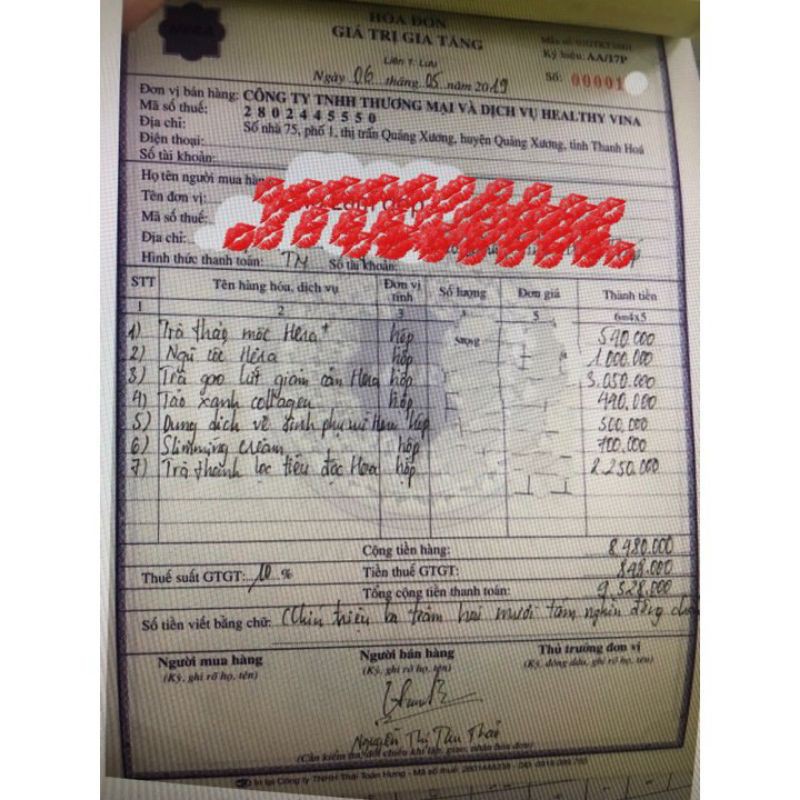 HÓA ĐƠN
GIÁ TRỊ GIA TĂNG
Liên 1: Lưu
Ký hiệu: AA/17P
Ngày 06 tháng 05 năm 2019
Số: 00001
Đơn vị bán hàng: CÔNG TY TNHH THƯƠNG MẠI VÀ DỊCH VỤ HEALTHY VINA
Mã số thuế: 2802445550
Địa chỉ: Số nhà 75, phố 1, thị trấn Quảng Xương, huyện Quảng Xương, tỉnh Thanh Hoá
Điện thoại:
Số tài khoản:
Họ tên người mua hàng
Tên đơn vị:
Mã số thuế:
Địa chỉ:
Hình thức thanh toán: TM Số tài khoản:
STT Tên hàng hóa, dịch vụ Đơn vị tính Số lượng Đơn giá Thành tiền
1 2 3 5 6=4x5
1) Trà thảo mộc Hera+ hộp 540.000
2) Ngũ cốc Hera hộp 1.000.000
3) Trà gạo lứt giảm cân Hera hộp 3.050.000
4) Táo xanh collagen hộp 440.000
5) Dung dịch vệ sinh phụ nữ Hera hộp 500.000
6) Slimming cream hộp 700.000
7) Trà thanh lọc tiêu độc Hera hộp 2.250.000
Cộng tiền hàng: 8.480.000
Thuế suất GTGT: 10 % Tiền thuế GTGT: 848.000
Tổng cộng tiền thanh toán: 9.328.000
Số tiền viết bằng chữ: Chín triệu ba trăm hai mươi tám nghìn đồng
Người mua hàng Người bán hàng Thủ trưởng đơn vị
(Ký, ghi rõ họ, tên) (Ký, ghi rõ họ, tên) (Ký, đóng dấu, ghi rõ họ, tên)
Nguyễn Thị Thu Thảo
(Cần kiểm tra, đối chiếu khi lập, giao, nhận hóa đơn)
In tại Công ty TNHH Thái Toàn Hưng - Mã số thuế: